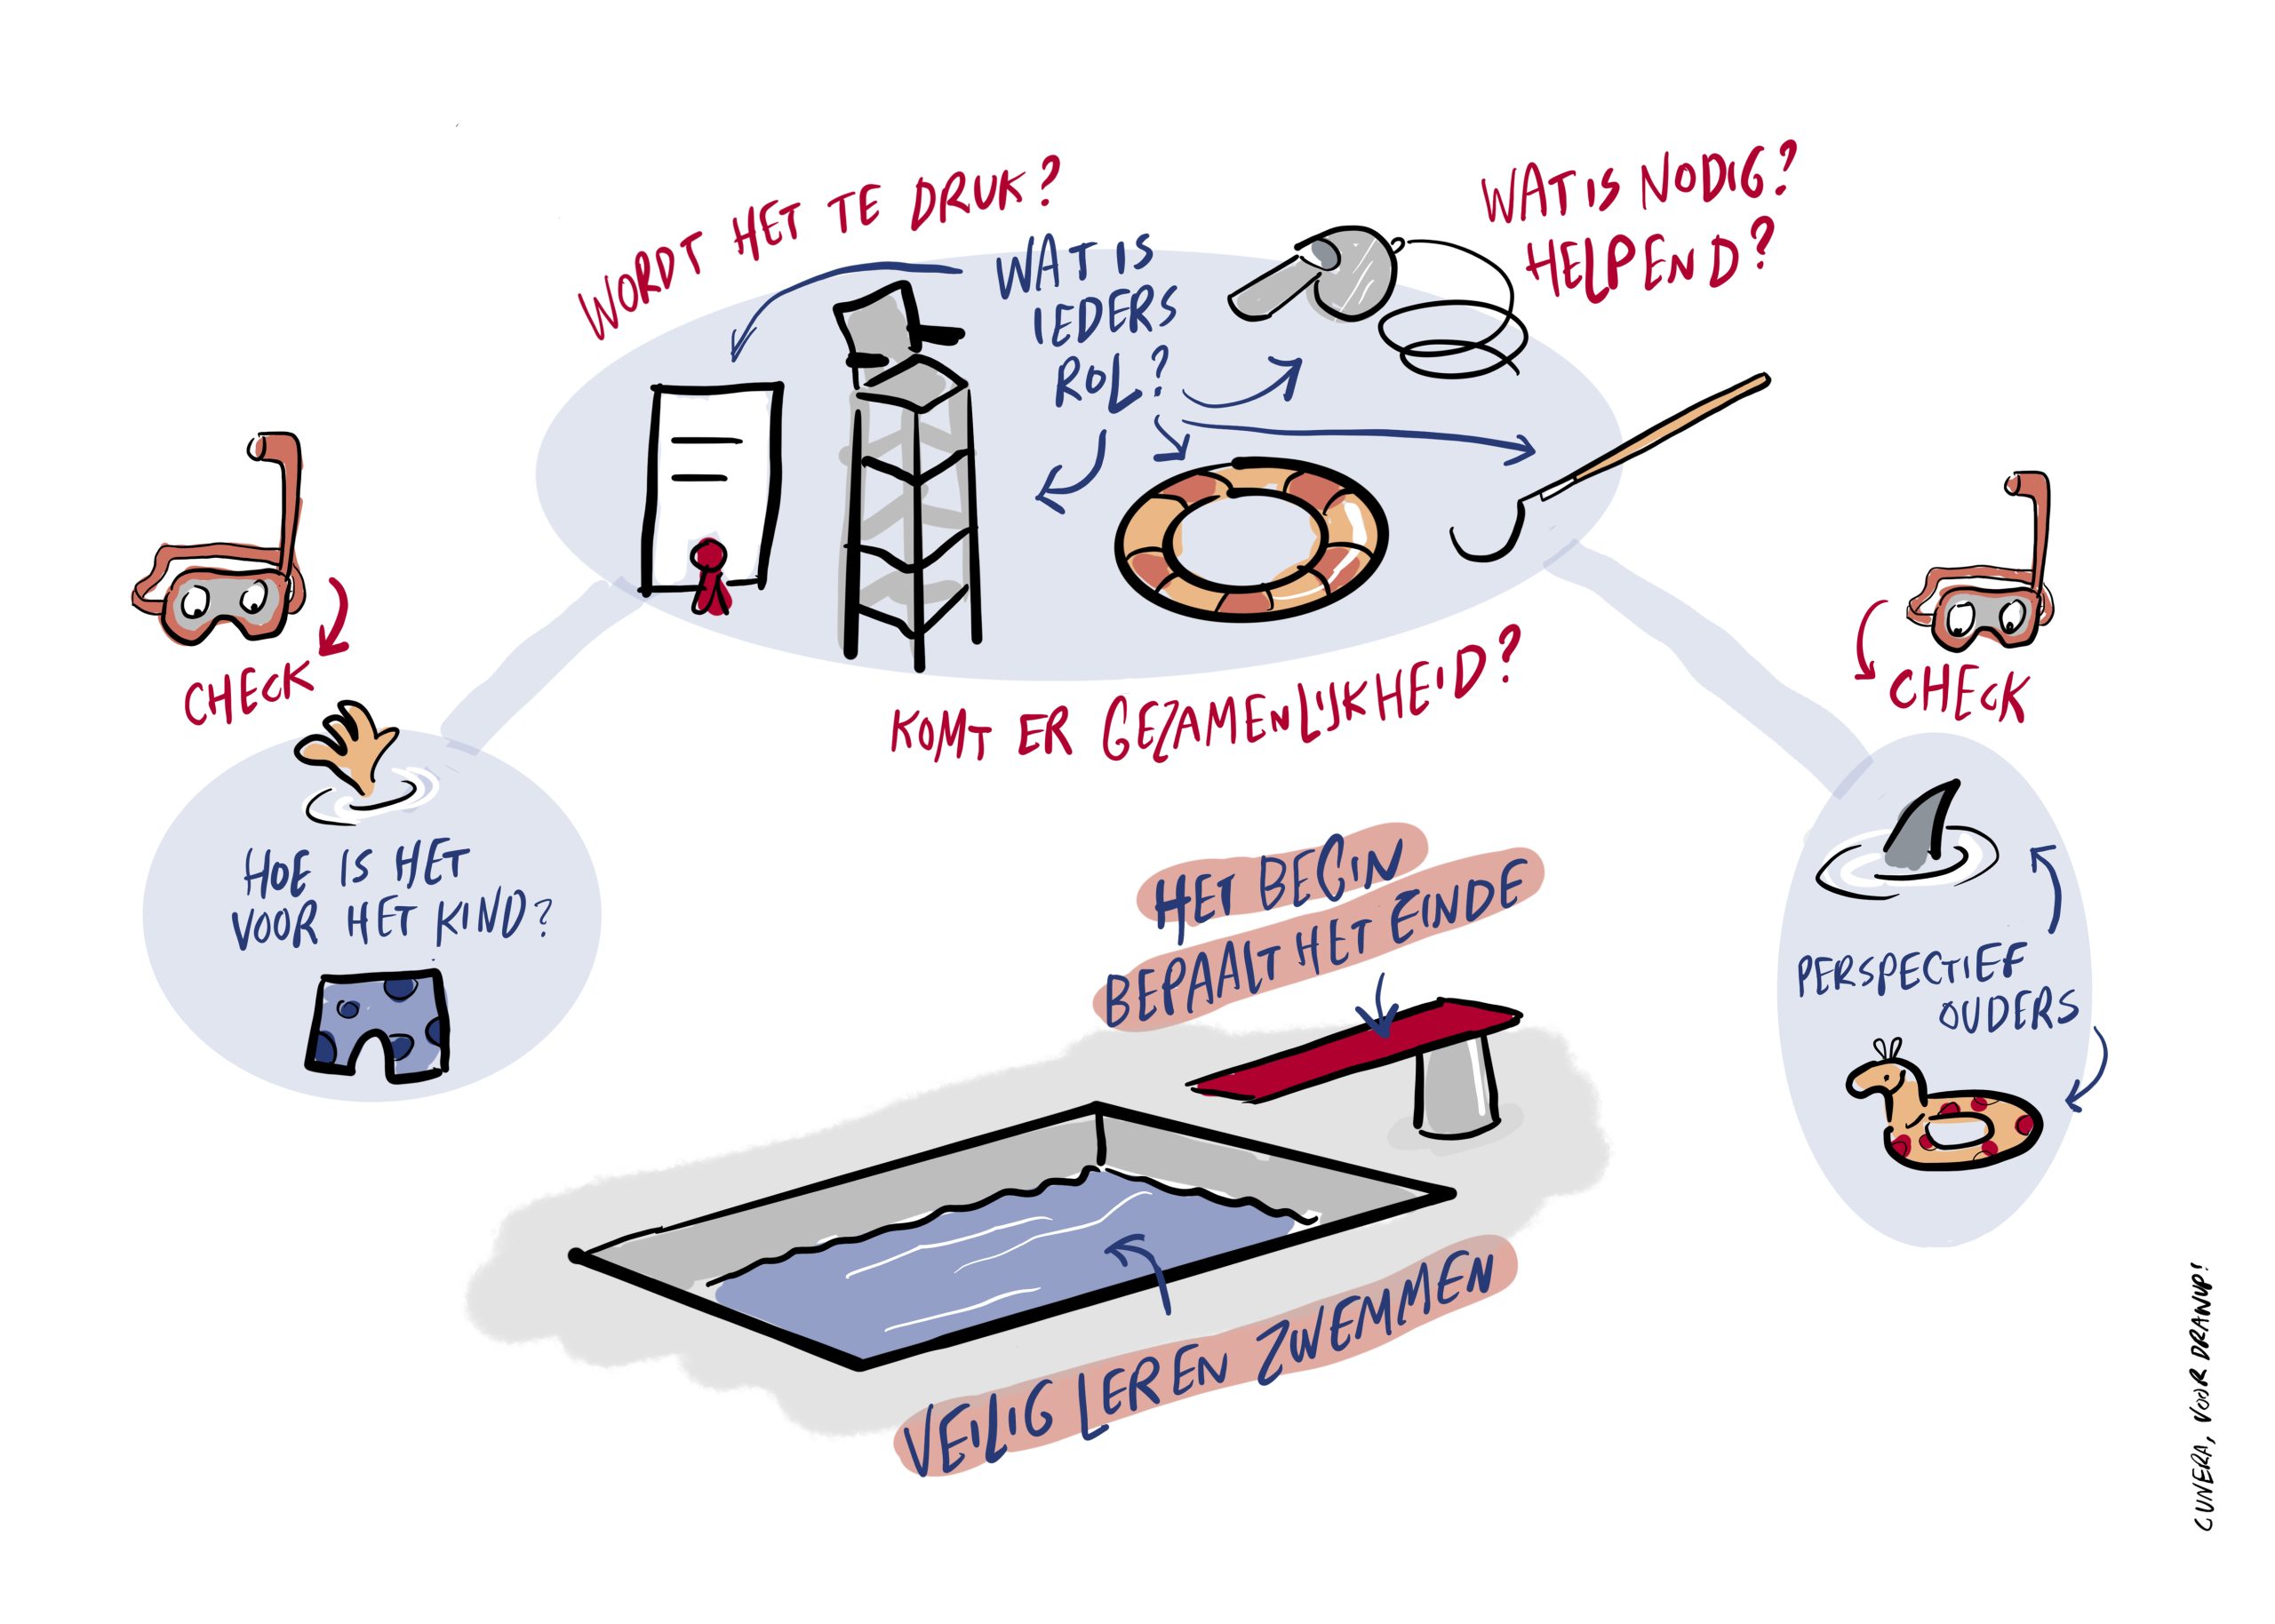 WORDT HET TE DRUK?
WAT IS NODIG?
HELPEND?
WAT IS
IEDERS
ROL?
CHECK
CHECK
KOMT ER GEZAMENLIJKHEID?
HOE IS HET
VOOR HET KIND?
HET BEGIN
BEPAALT HET EINDE
PERSPECTIEF
OUDERS
VEILIG LEREN ZWEMMEN
CUNERA, VOOR DRANUP!